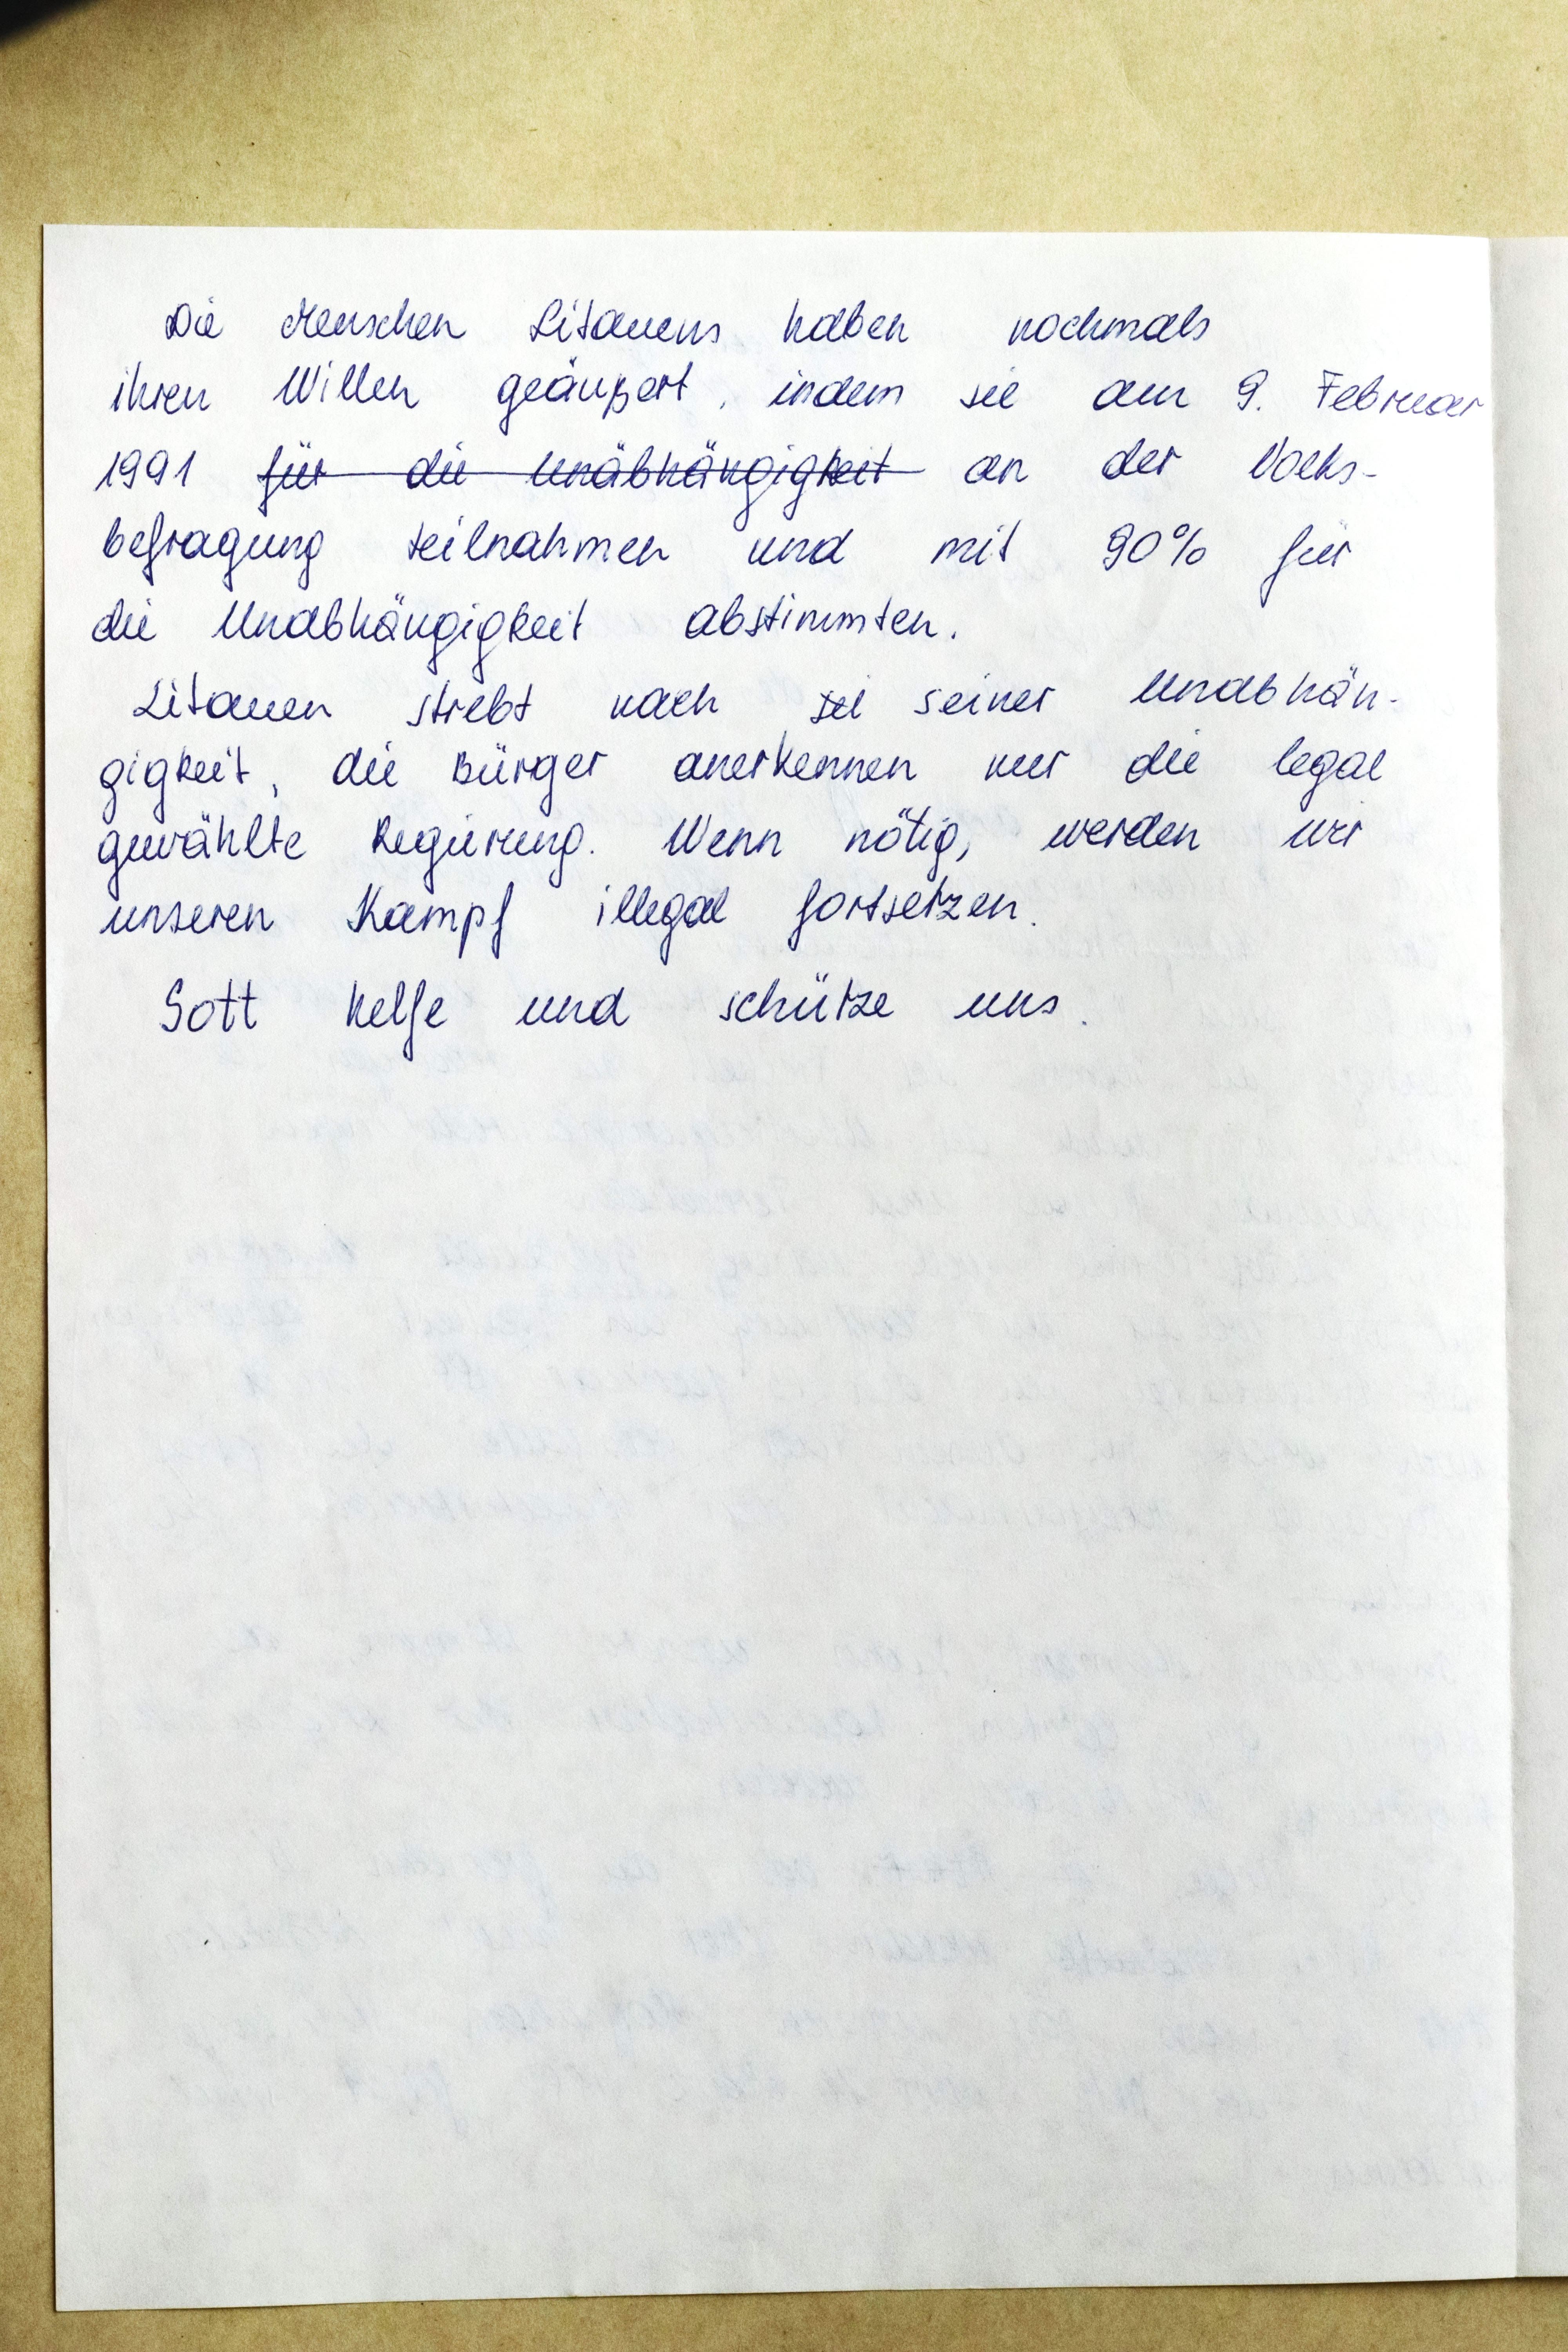 Die Menschen Litauens haben nochmals
ihren Willen geäußert, indem sie am 9. Februar
1991 für die Unäbhängigkeit an der Volks-
befragung teilnahmen und mit 90% für
die Unabhängigkeit abstimmten.
Litauen strebt nach sei seiner Unabhän-
gigkeit, die Bürger anerkennen nur die legal
gewählte Regierung. Wenn nötig, werden wir
unseren Kampf illegal fortsetzen.
Gott helfe und schütze uns.